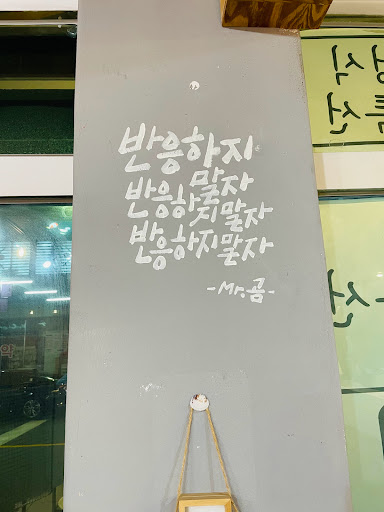 반응하지
말자
반응하지말자
반응하지말자
-Mr.곰-